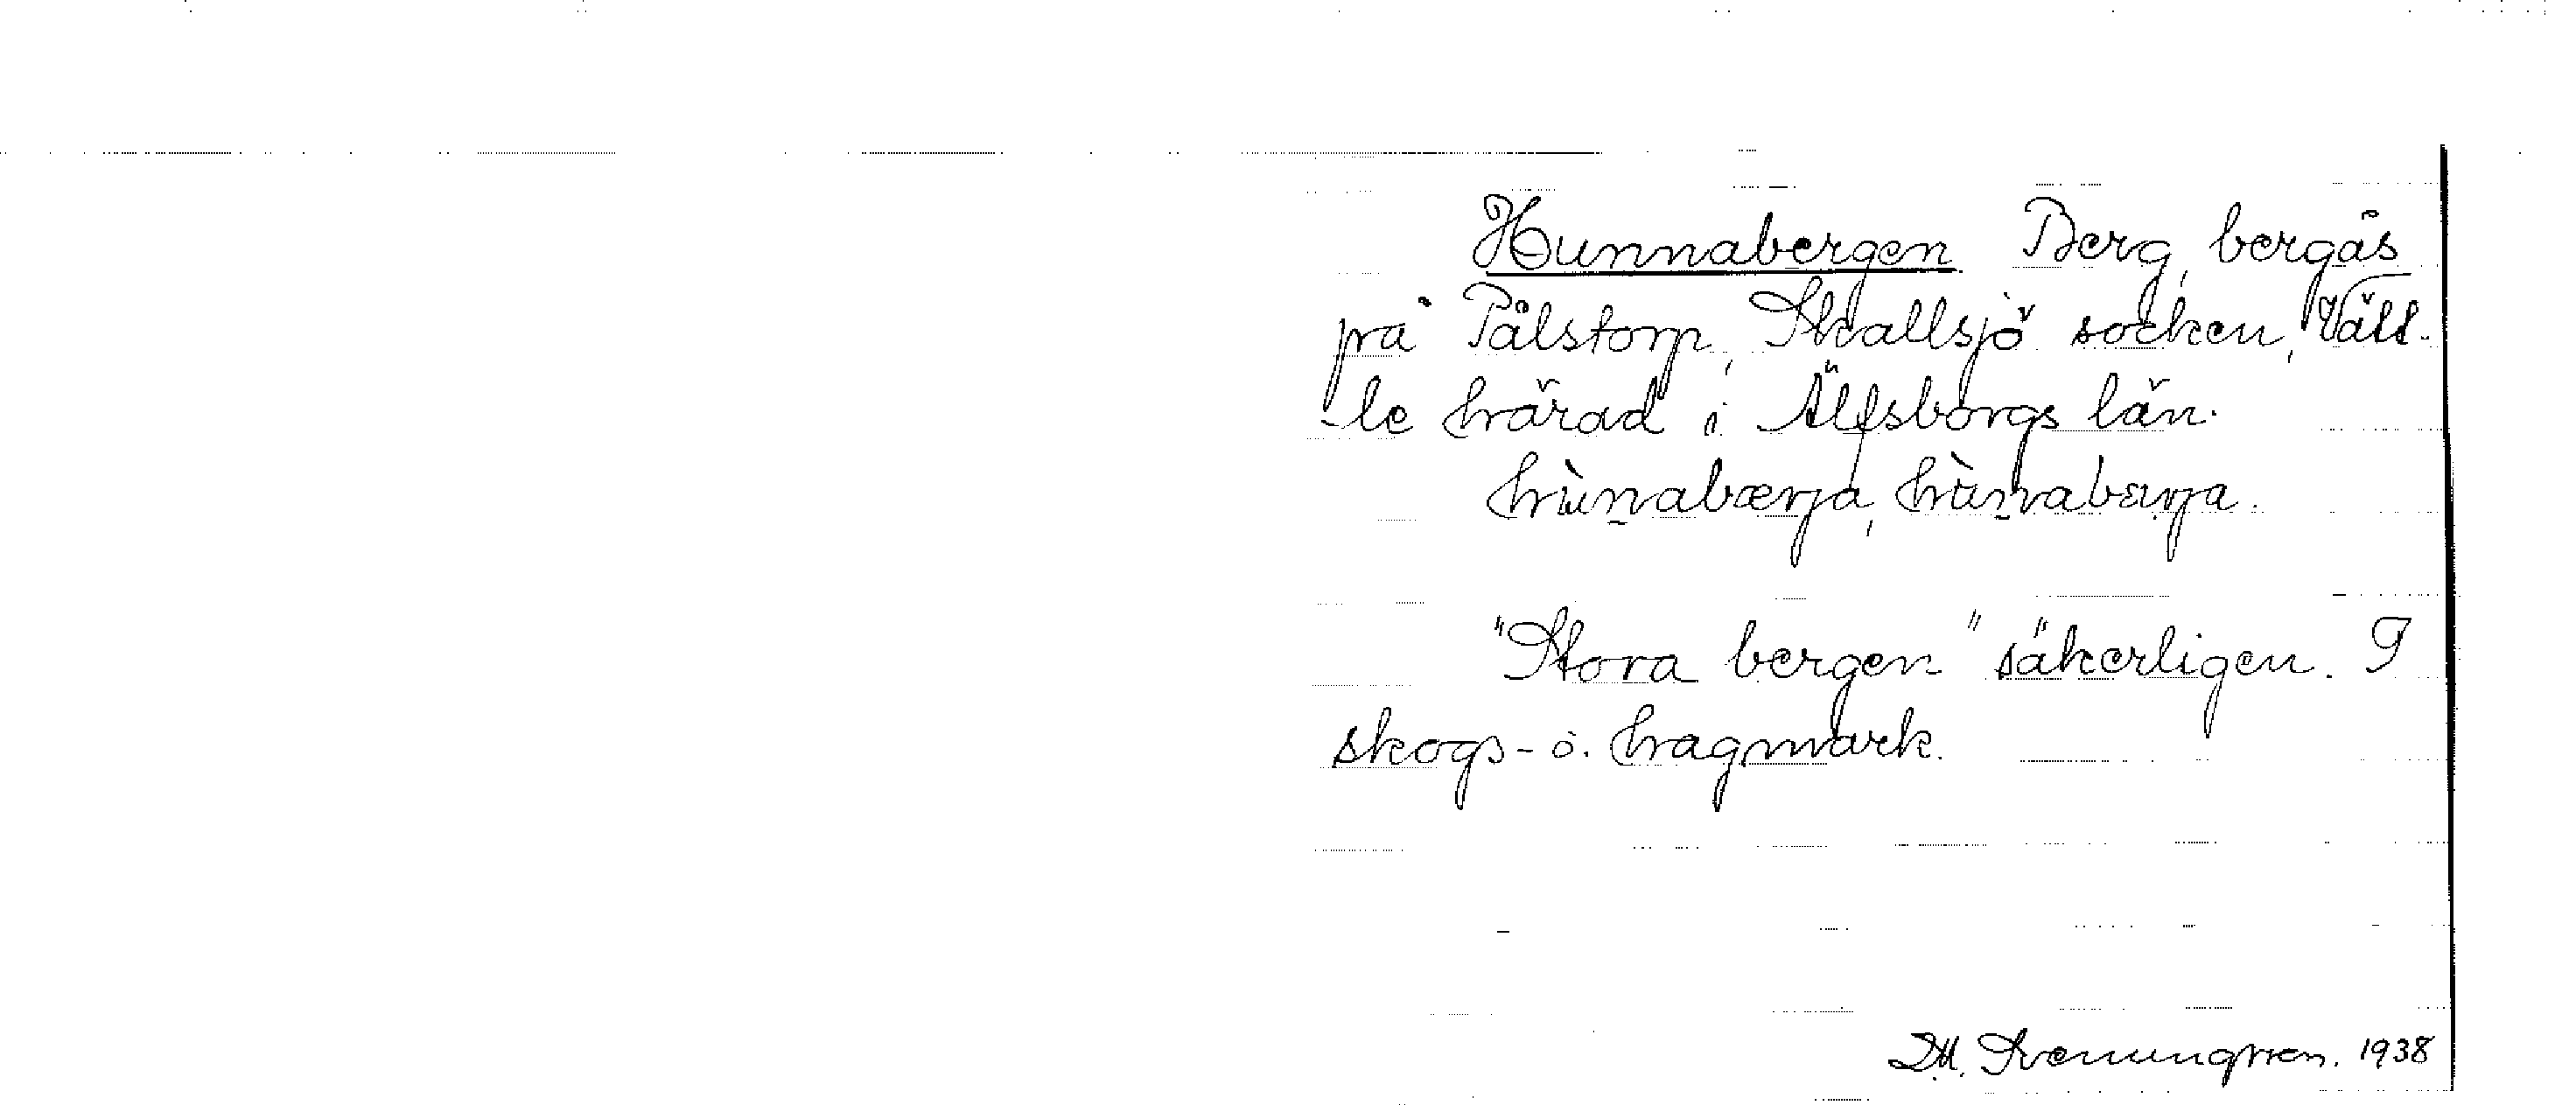 Hunnabergen Berg, bergås
på Pålstorp, Skallsjö socken, Vätt-
-le härad i Älfsborgs län.
hùn̰abærja, hùn̰abærja.
"Stora bergen" säkerligen. I
skogs- o. hagmark.
D.M. Svenungsson. 1938